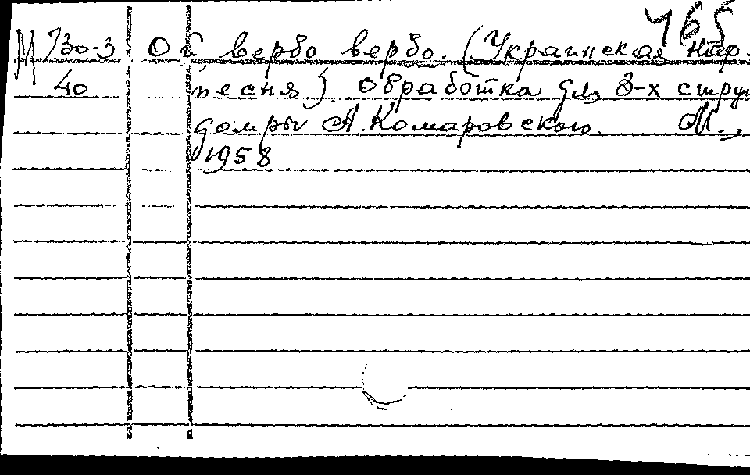 465
М 730-3 Ой вербо вербо. (Украинская нар.
40 песня) Обработка для 3-х струн
домры А. Комаровского. М.,
1958